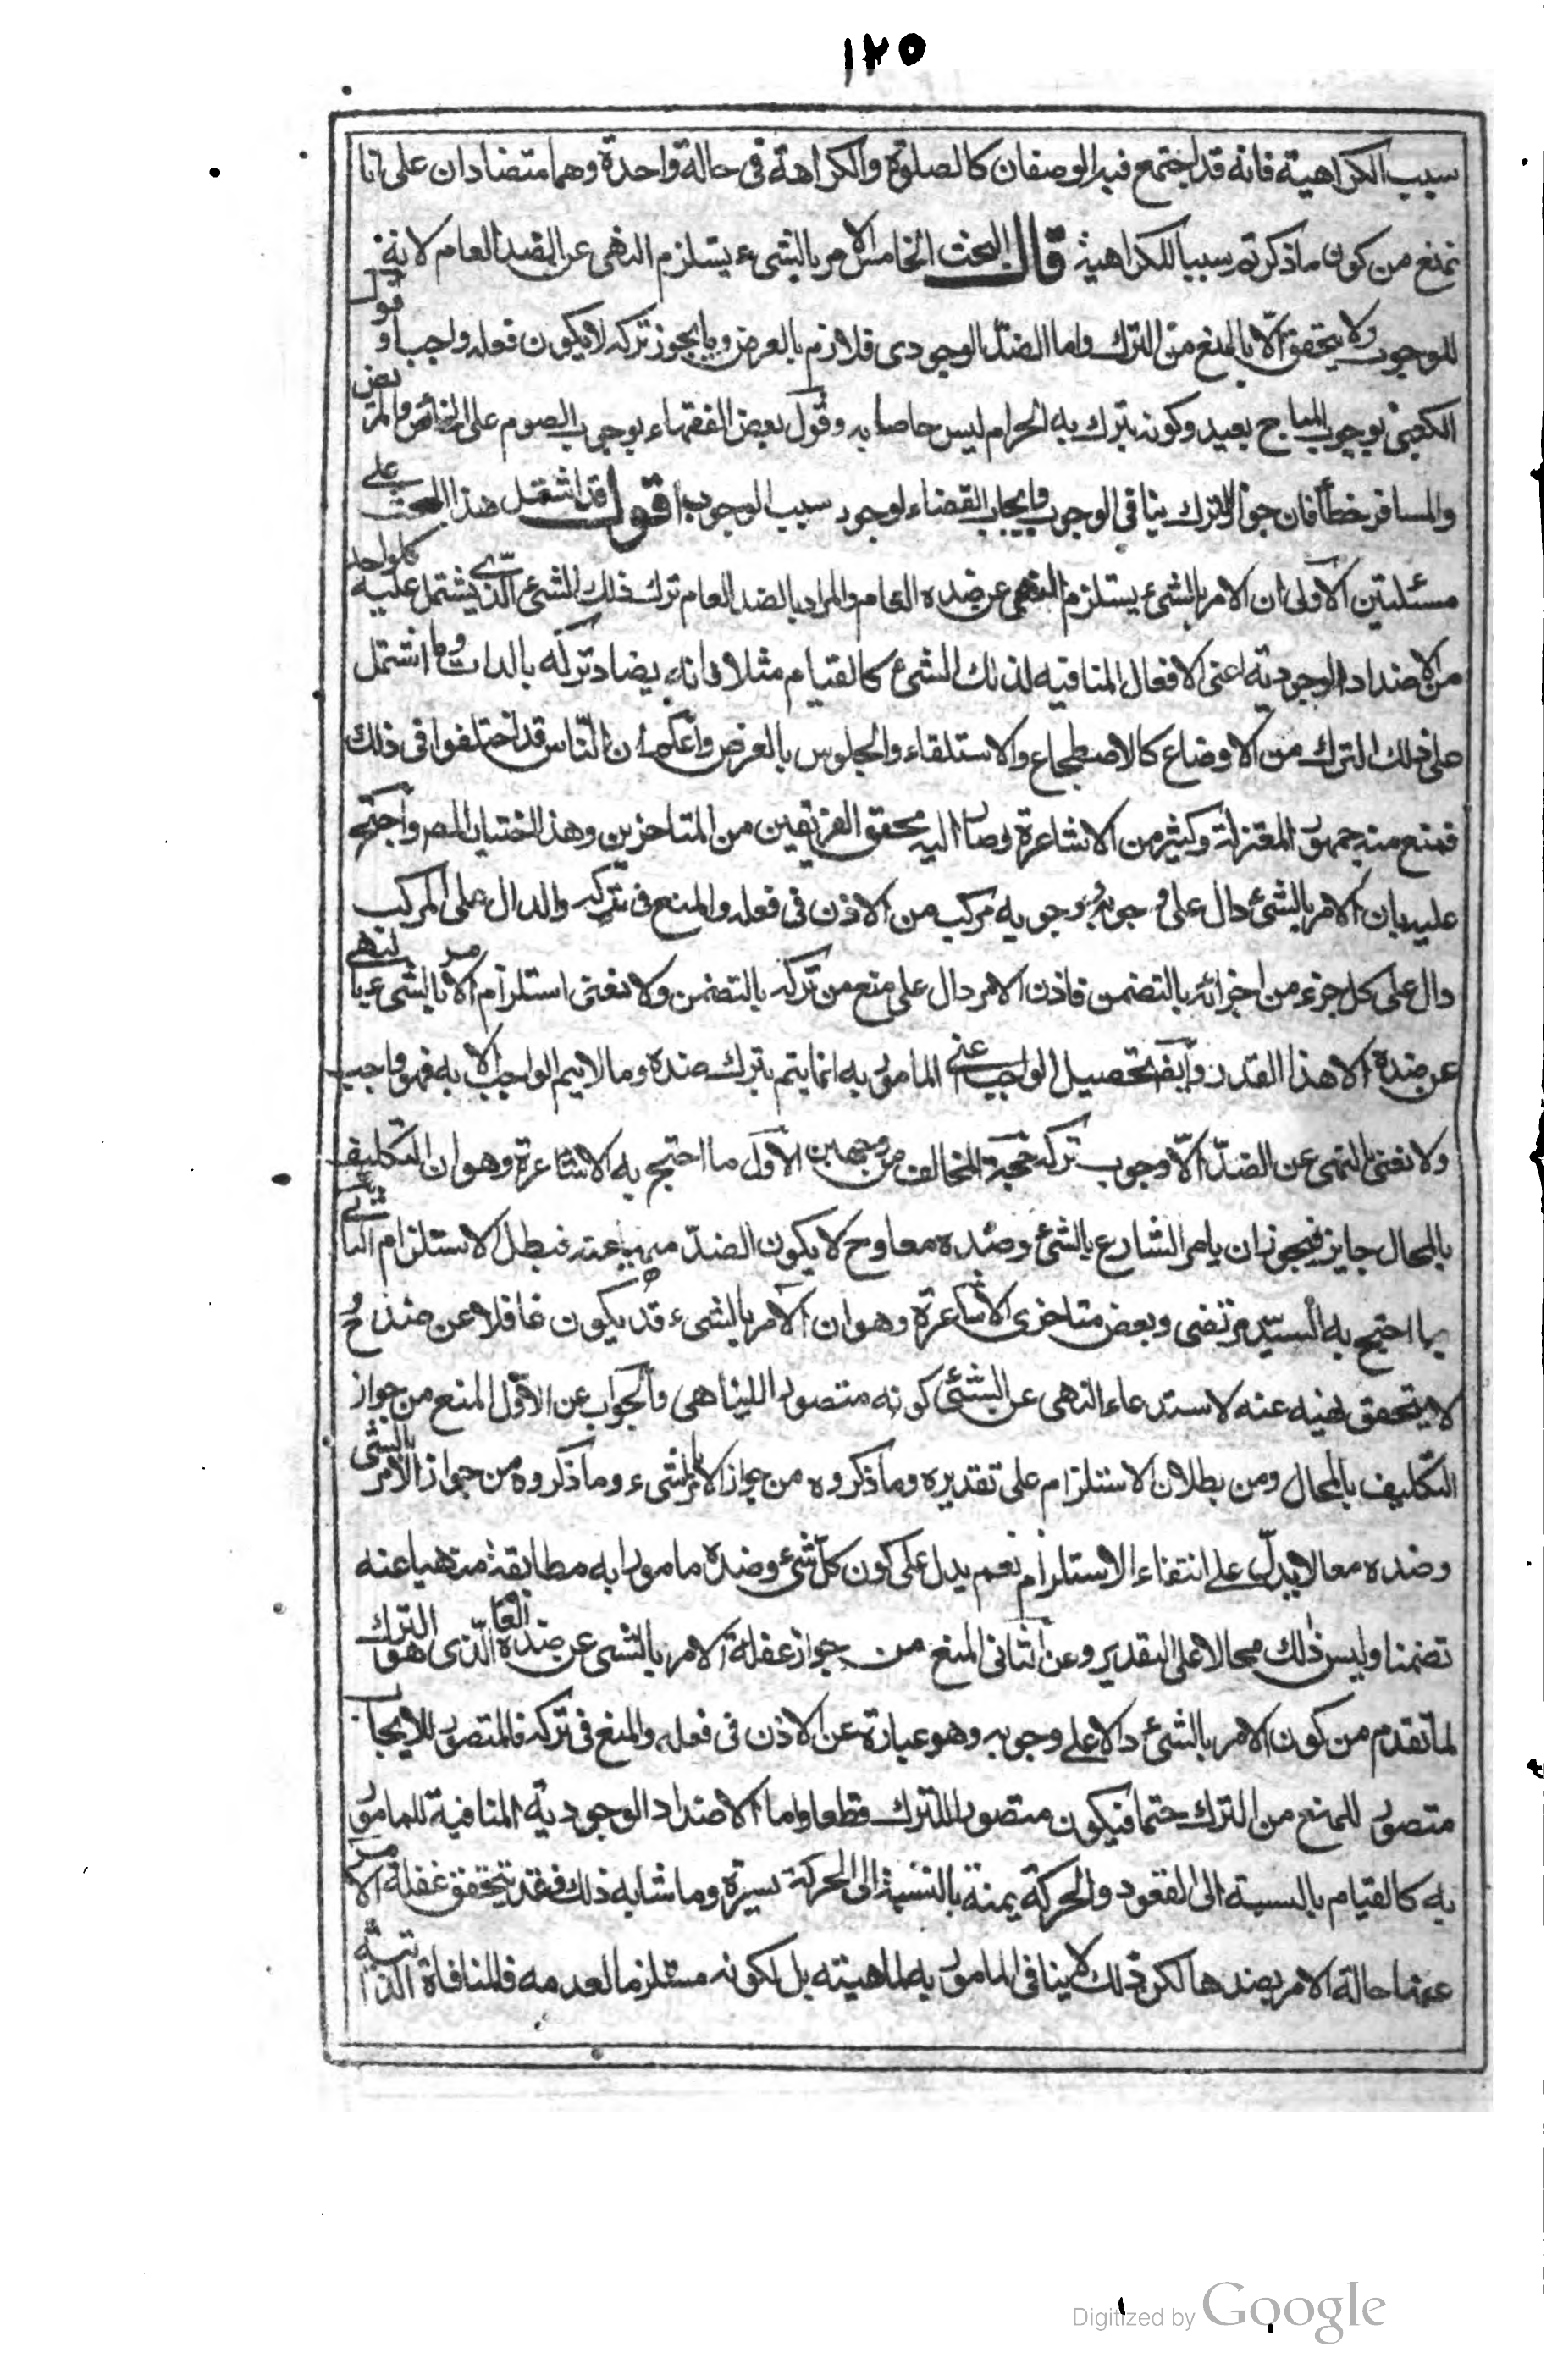 ١٢٥
سبب الكراهية فانه قد اجتمع فيه الوصفان كالصلوة والكراهة في حالة واحدة وهما متضادان على انا
نمنع من كون ما ذكرتم سببا للكراهية قال البحث الخامس الامر بالشيء يستلزم النهي عن الضد العام لانه
للوجوب ولا يتحقق الا بالمنع من الترك واما الضد الوجودي فلازم بالعرض وما يجوز تركه لا يكون فعله واجبا وقول
الكعبي بوجوب المباح بعيد وكونه يترك به الحرام ليس خاصا به وقول بعض الفقهاء بوجوب الصوم على الحائض والمريض
والمسافر خطأ فان جواز الترك ينافي الوجوب وايجاب القضاء لوجود سبب الوجوب اقول قد اشتمل هذا البحث على
مسئلتين الاولى ان الامر بالشيء يستلزم النهي عن ضده العام والمراد بالضد العام ترك ذلك الشيء الذي يشتمل عليه كل واحد
من الاضداد الوجودية اعني الافعال المنافيه لذلك الشيء كالقيام مثلا فانه يضاد تركه بالذات وما اشتمل
على ذلك الترك من الاوضاع كالاضطجاع والاستلقاء والجلوس بالعرض واعلم ان الناس قد اختلفوا في ذلك
فمنع منه جمهور المعتزلة وكثير من الاشاعرة وصار اليه محققو الفريقين من المتاخرين وهذا اختيار المصر واحتج
عليه بان الامر بالشيء دال على وجوبه ووجوبه مركب من الاذن في فعله والمنع في تركه والدال على المركب
دال على كل جزء من اجزائه بالتضمن فاذن الامر دال على منع من تركه بالتضمن ولا نعني استلزام الامر بالشيء بالنهي
عن ضده الا هذا القدر وايضا تحصيل الواجب اعني المامور به انما يتم بترك ضده وما لا يتم الواجب الا به فهو واجب
ولا نعني بالنهي عن الضد الا وجوب تركه حجة المخالف من وجهين الاول ما احتج به الاشاعرة وهو ان التكليف
بالمحال جايز فيجوز ان يامر الشارع بالشيء وضده معا وح لا يكون الضد منهيا عنه فبطل الاستلزام الثاني
ما احتج به السيد مرتضى وبعض متاخري الاشاعرة وهو ان الامر بالشيء قد يكون غافلا عن ضده وح
لا يتحقق نهيه عنه لاستدعاء النهي عن الشيء كونه متصورا للناهي والجواب عن الاول المنع من جواز
التكليف بالمحال ومن بطلان الاستلزام على تقديره وما ذكروه من جواز الامر بالشيء وما ذكروه من جواز الامر بالشي
وضده معا لا يدل على انتفاء الاستلزام نعم يدل على كون كل شيء وضده مامورا به مطابقة منهيا عنه
تضمنا وليس ذلك محالا على التقدير وعن الثاني المنع من جواز غفلة الامر بالشي عن ضده العام الذي هو الترك
لما تقدم من كون الامر بالشيء دالا على وجوبه وهو عبارة عن الاذن في فعله والمنع في تركه فالمتصور للايجاب
متصور للمنع من الترك حتما فيكون متصورا للترك قطعا واما الاضداد الوجودية المنافية للمامور
به كالقيام بالنسبة الى القعود والحركة يمنة بالنسبة الى الحركة يسرة وما شابه ذلك فقد يتحقق غفلة الامر
عنها حالة الامر بضدها لكن ذلك لا ينافي المامور به لماهيته بل لكونه مستلزما لعدمه فالمنافاة الذاتية
Digitized by Google